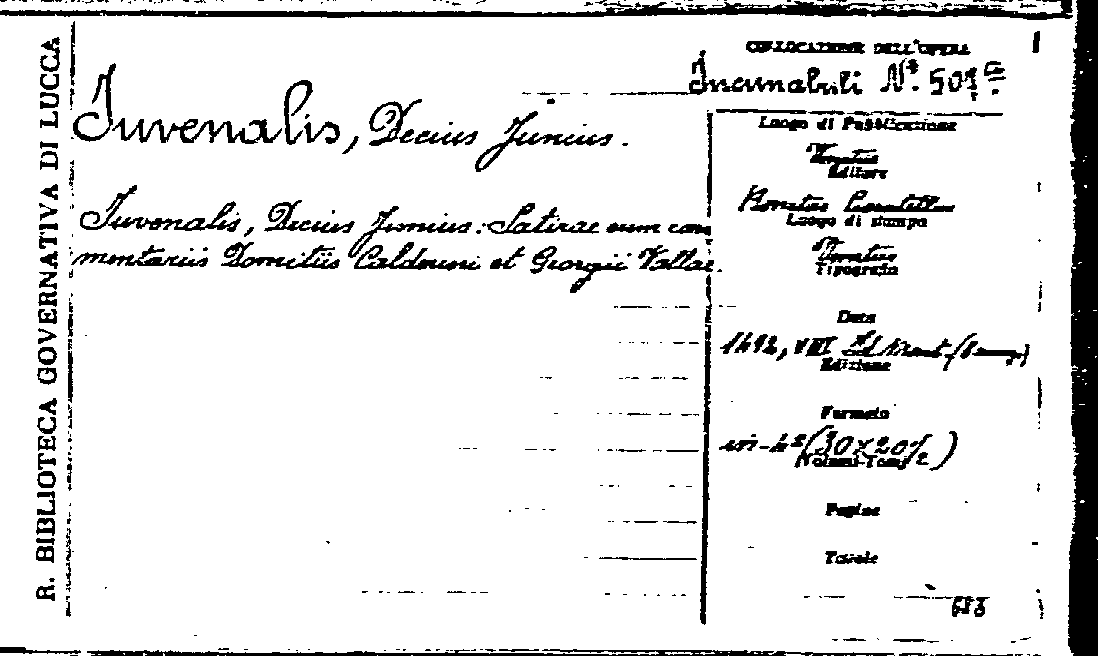 R. BIBLIOTECA GOVERNATIVA DI LUCCA
COLLOCAZIONE DELL'OPERA
Incunabuli N.º 507
Juvenalis, Decius Junius.
Juvenalis, Decius Junius: Satirae cum com
mentariis Domitiis Calderini et Georgii Vallae.
Luogo di Pubblicazione
Venetiis
Editore
Bonetus Locatellus
Luogo di stampa
Venetiis
Tipografia
Data
1492, VIII
Edizione
Formato
in-4º (30x20/2)
(Volumi-Tomi)
Pagine
Tavole